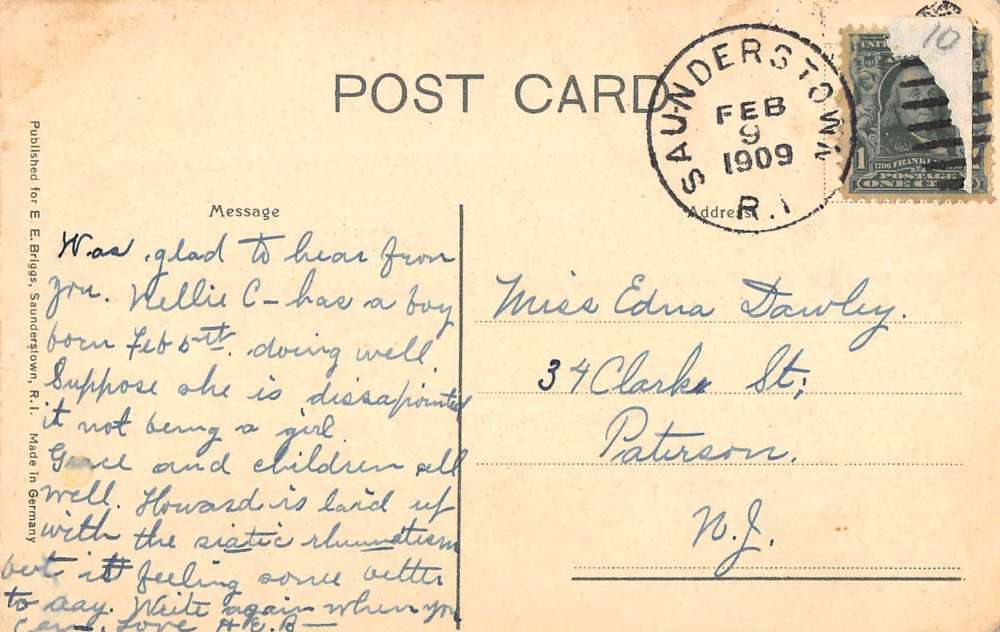 POST CARD
SAUNDERSTOWN
FEB
9
1909
R.I
10
FRANKLIN
1
POSTAGE
ONE CE
Published for E. E. Briggs, Saunderstown, R.I. Made in Germany
Message
Address
Was glad to hear from
you. Nellie C - has a boy
born Feb 5th. doing well
Suppose she is dissapointed
it not being a girl
Grace and children all
well. Howard is laid up
with the siatic rhumatism
but it feeling some better
to day. Write again when you
Can. Love H.E.B-
Miss Edna Dawley.
34 Clark St;
Paterson.
N.J.